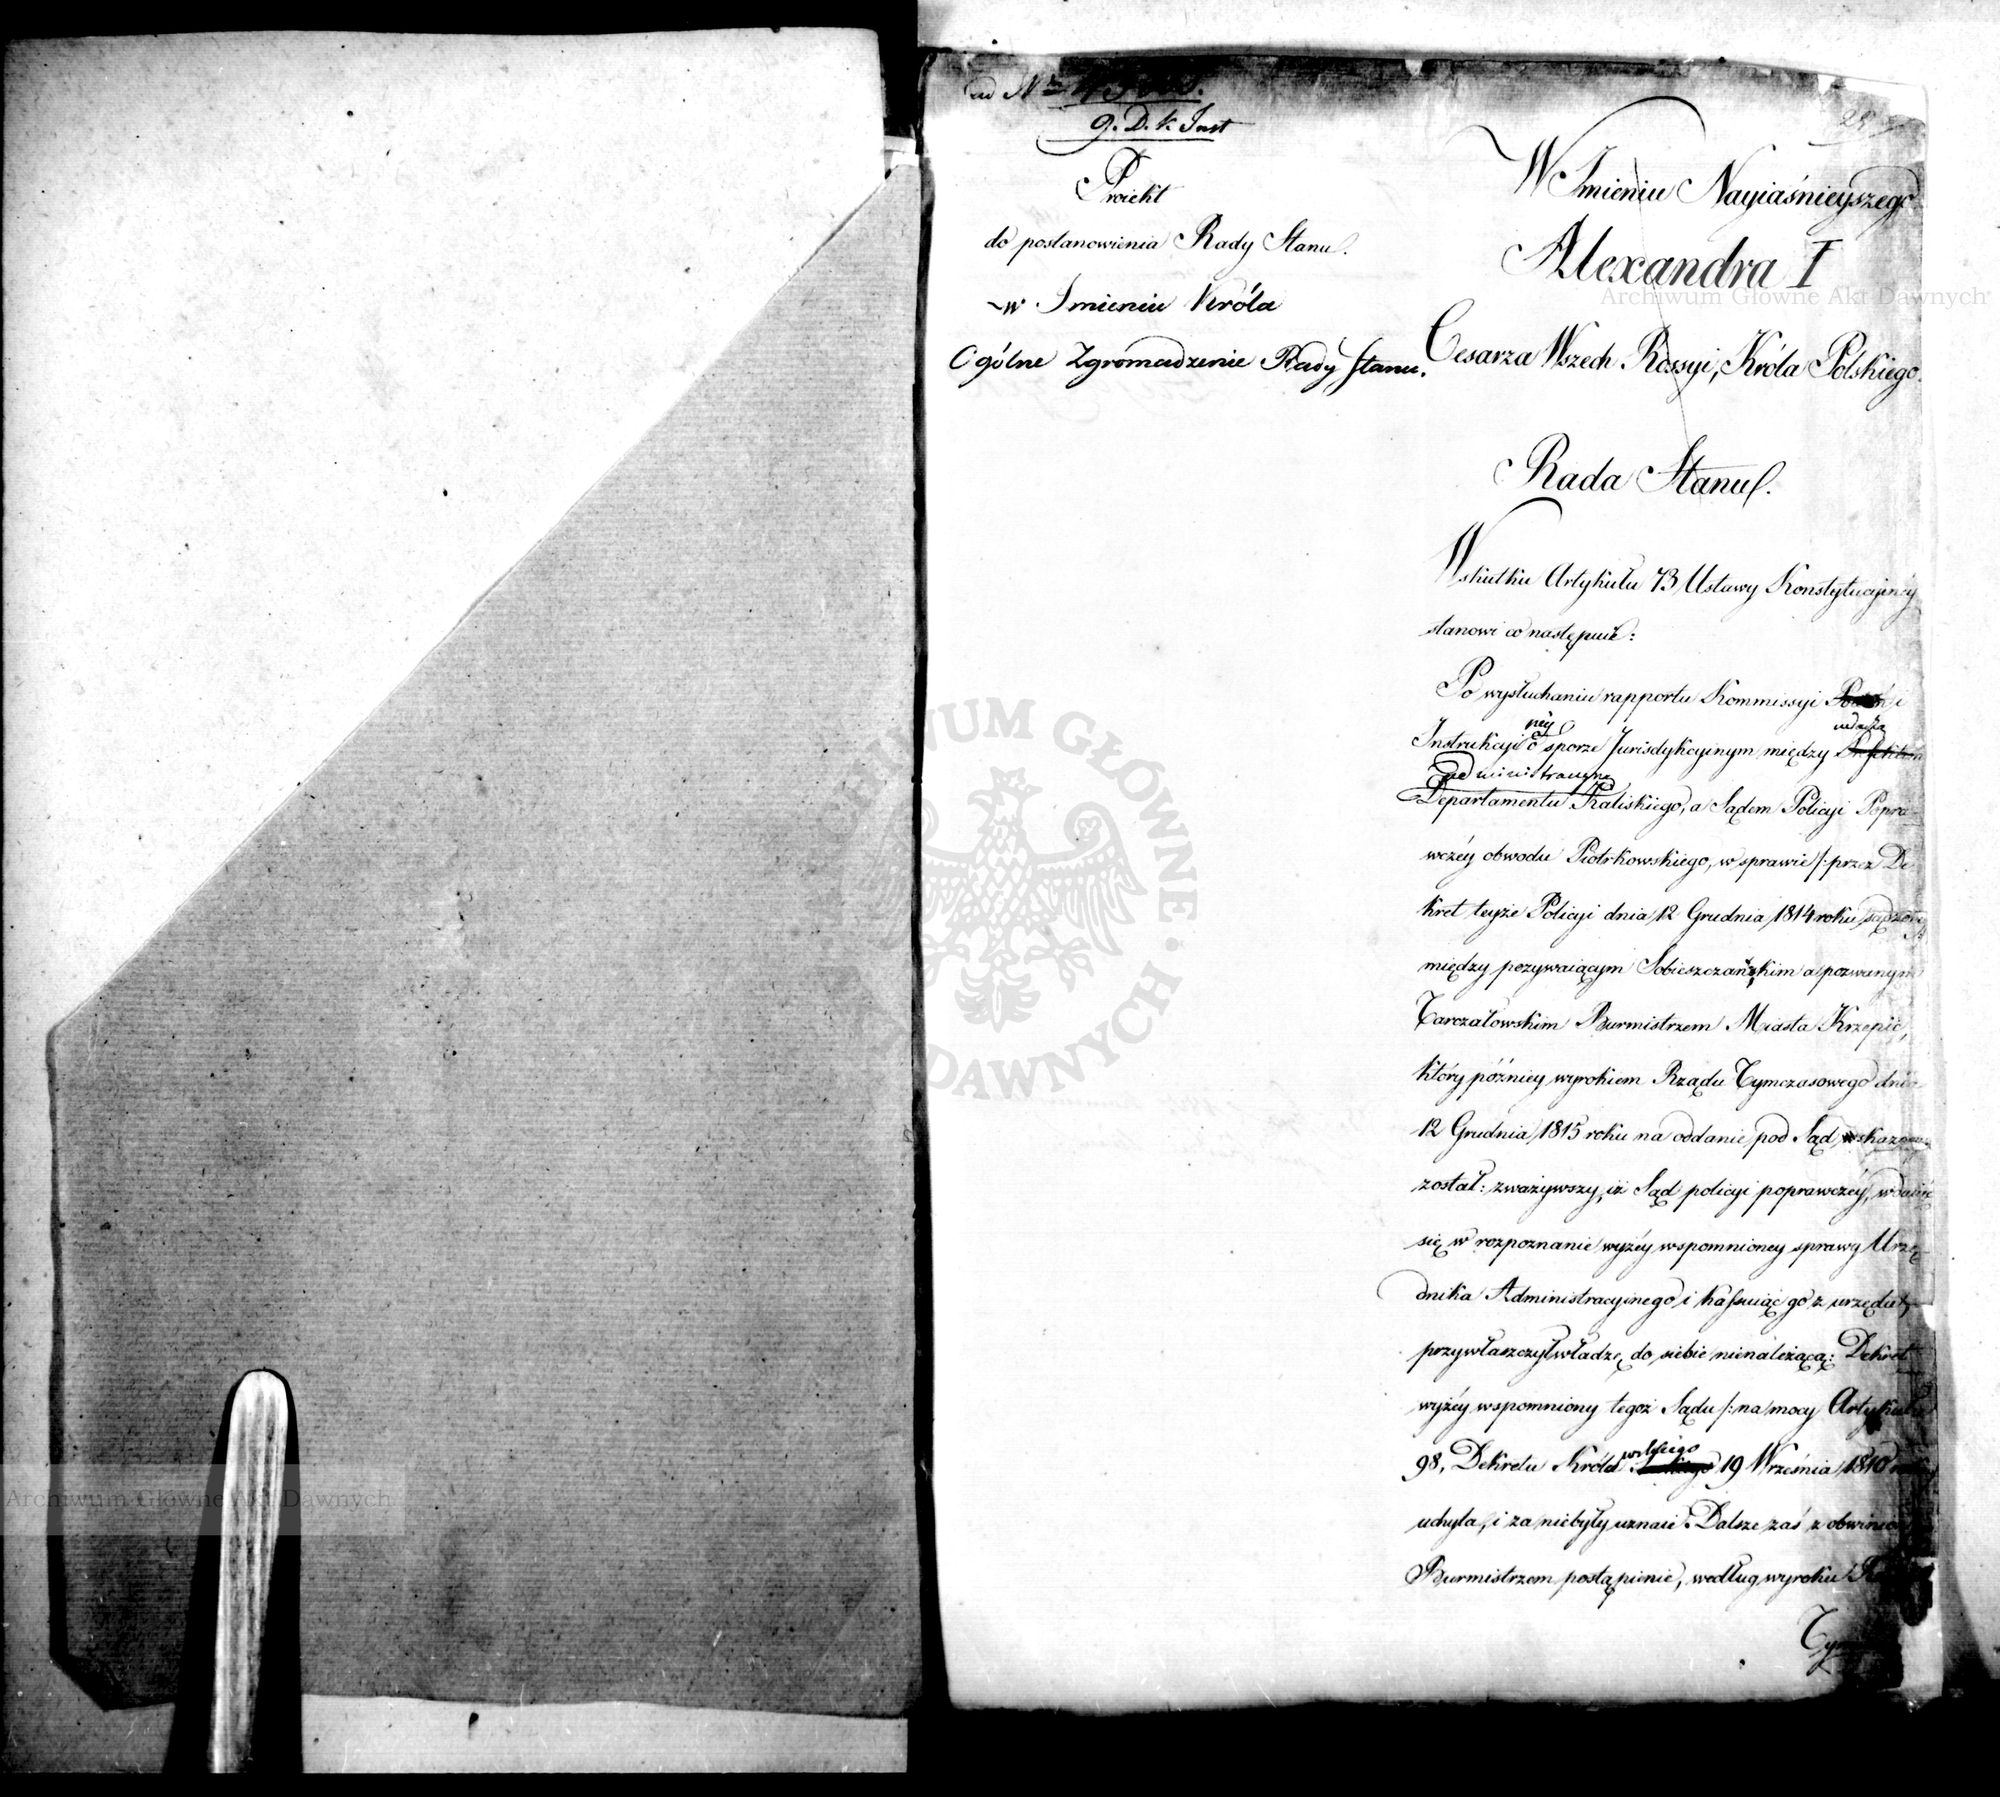 ad Nr
9. D. k. Inst
Proiekt
do postanowienia Rady Stanu.
w Imieniu Króla
Ogólne Zgromadzenie Rady Stanu.
W Imieniu Nayiaśnieyszego
Alexandra I
Cesarza Wszech Rossyi, Króla Polskiego.
Rada Stanu.
Wskutku Artykułu 73 Ustawy Konstytucyinéy
stanowi co następuie:
Po wysłuchaniu rapportu Kommissyi
Instrukcyi néy o sporze Jurisdykcyinym między władzą
administracyiną
Departamentu Kaliskiego, a Sądem Policyi Popra-
wczéy obwodu Piotrkowskiego, w sprawie /: przez De
kret teyże Policyi dnia 12 Grudnia 1814 roku sądzoney
między pozywaiącym Sobieszczańskim a pozwanym
Tarczałowskim Burmistrzem Miasta Krzepic,
który późniey wyrokiem Rządu Tymczasowego dnia
12 Grudnia 1815 roku na oddanie pod Sąd wskazany
został: zważywszy, iż Sąd policyi poprawczéy, wdaiąc
się w rozpoznanie wyżéy wspomnioney sprawy Urzę-
dnika Administracyinego i kassuiąc go z urzędu,
przywłaszczył władzę do siebie nienależącą: Dekret
wyżéy wspomniony tegoż Sądu /: na mocy Artykułu
98, Dekretu Króla 19 Września 1810 roku
uchyla, i za niebyły uznaie. Dalsze zaś z obwinionym
Burmistrzem postąpienie, według wyroku
Archiwum Główne Akt Dawnych
ARCHIWUM GŁÓWNE AKT DAWNYCH
Archiwum Główne Akt Dawnych